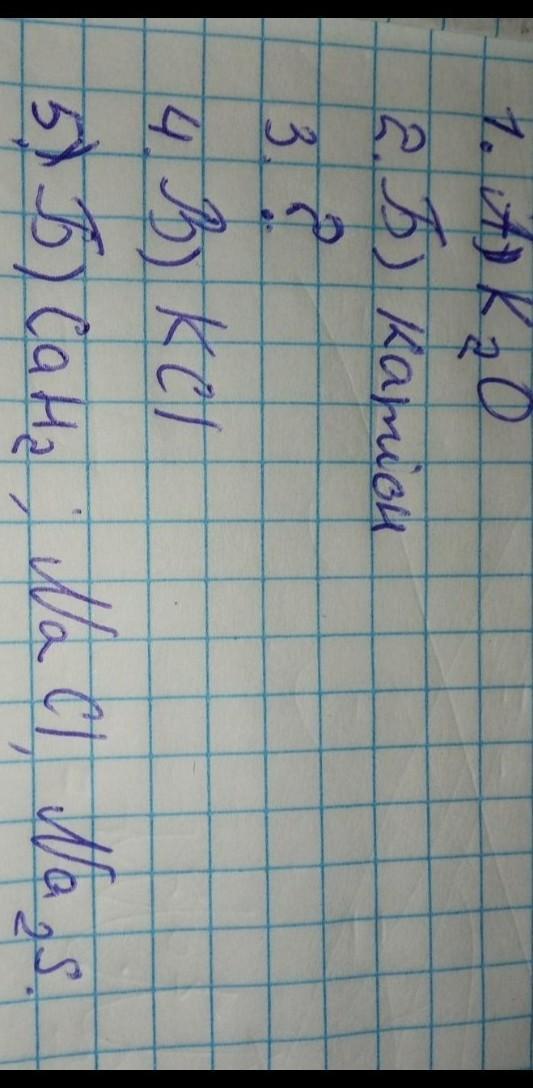 1. А) K₂O
2. Б) Катіон
3. ?
4. В) KCl
5.) Б) CaH₂; NaCl, Na₂S.